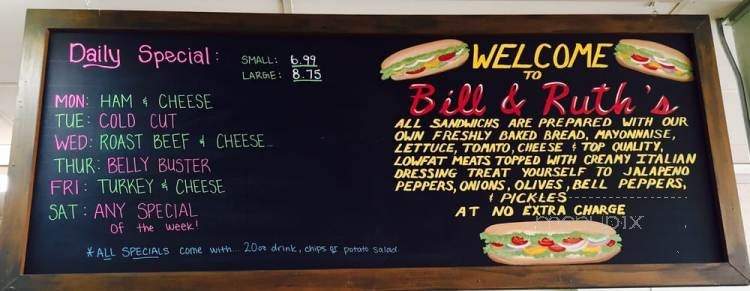 Daily Special:
SMALL: 6.99
LARGE: 8.75
MON: HAM & CHEESE
TUE: COLD CUT
WED: ROAST BEEF & CHEESE
THUR: BELLY BUSTER
FRI: TURKEY & CHEESE
SAT: ANY SPECIAL
of the week!
*ALL SPECIALS come with... 20oz drink, chips or potato salad
WELCOME
TO
Bill & Ruth's
ALL SANDWICHS ARE PREPARED WITH OUR
OWN FRESHLY BAKED BREAD, MAYONNAISE,
LETTUCE, TOMATO, CHEESE & TOP QUALITY,
LOWFAT MEATS TOPPED WITH CREAMY ITALIAN
DRESSING TREAT YOURSELF TO JALAPENO
PEPPERS, ONIONS, OLIVES, BELL PEPPERS,
& PICKLES
AT NO EXTRA CHARGE
menupix